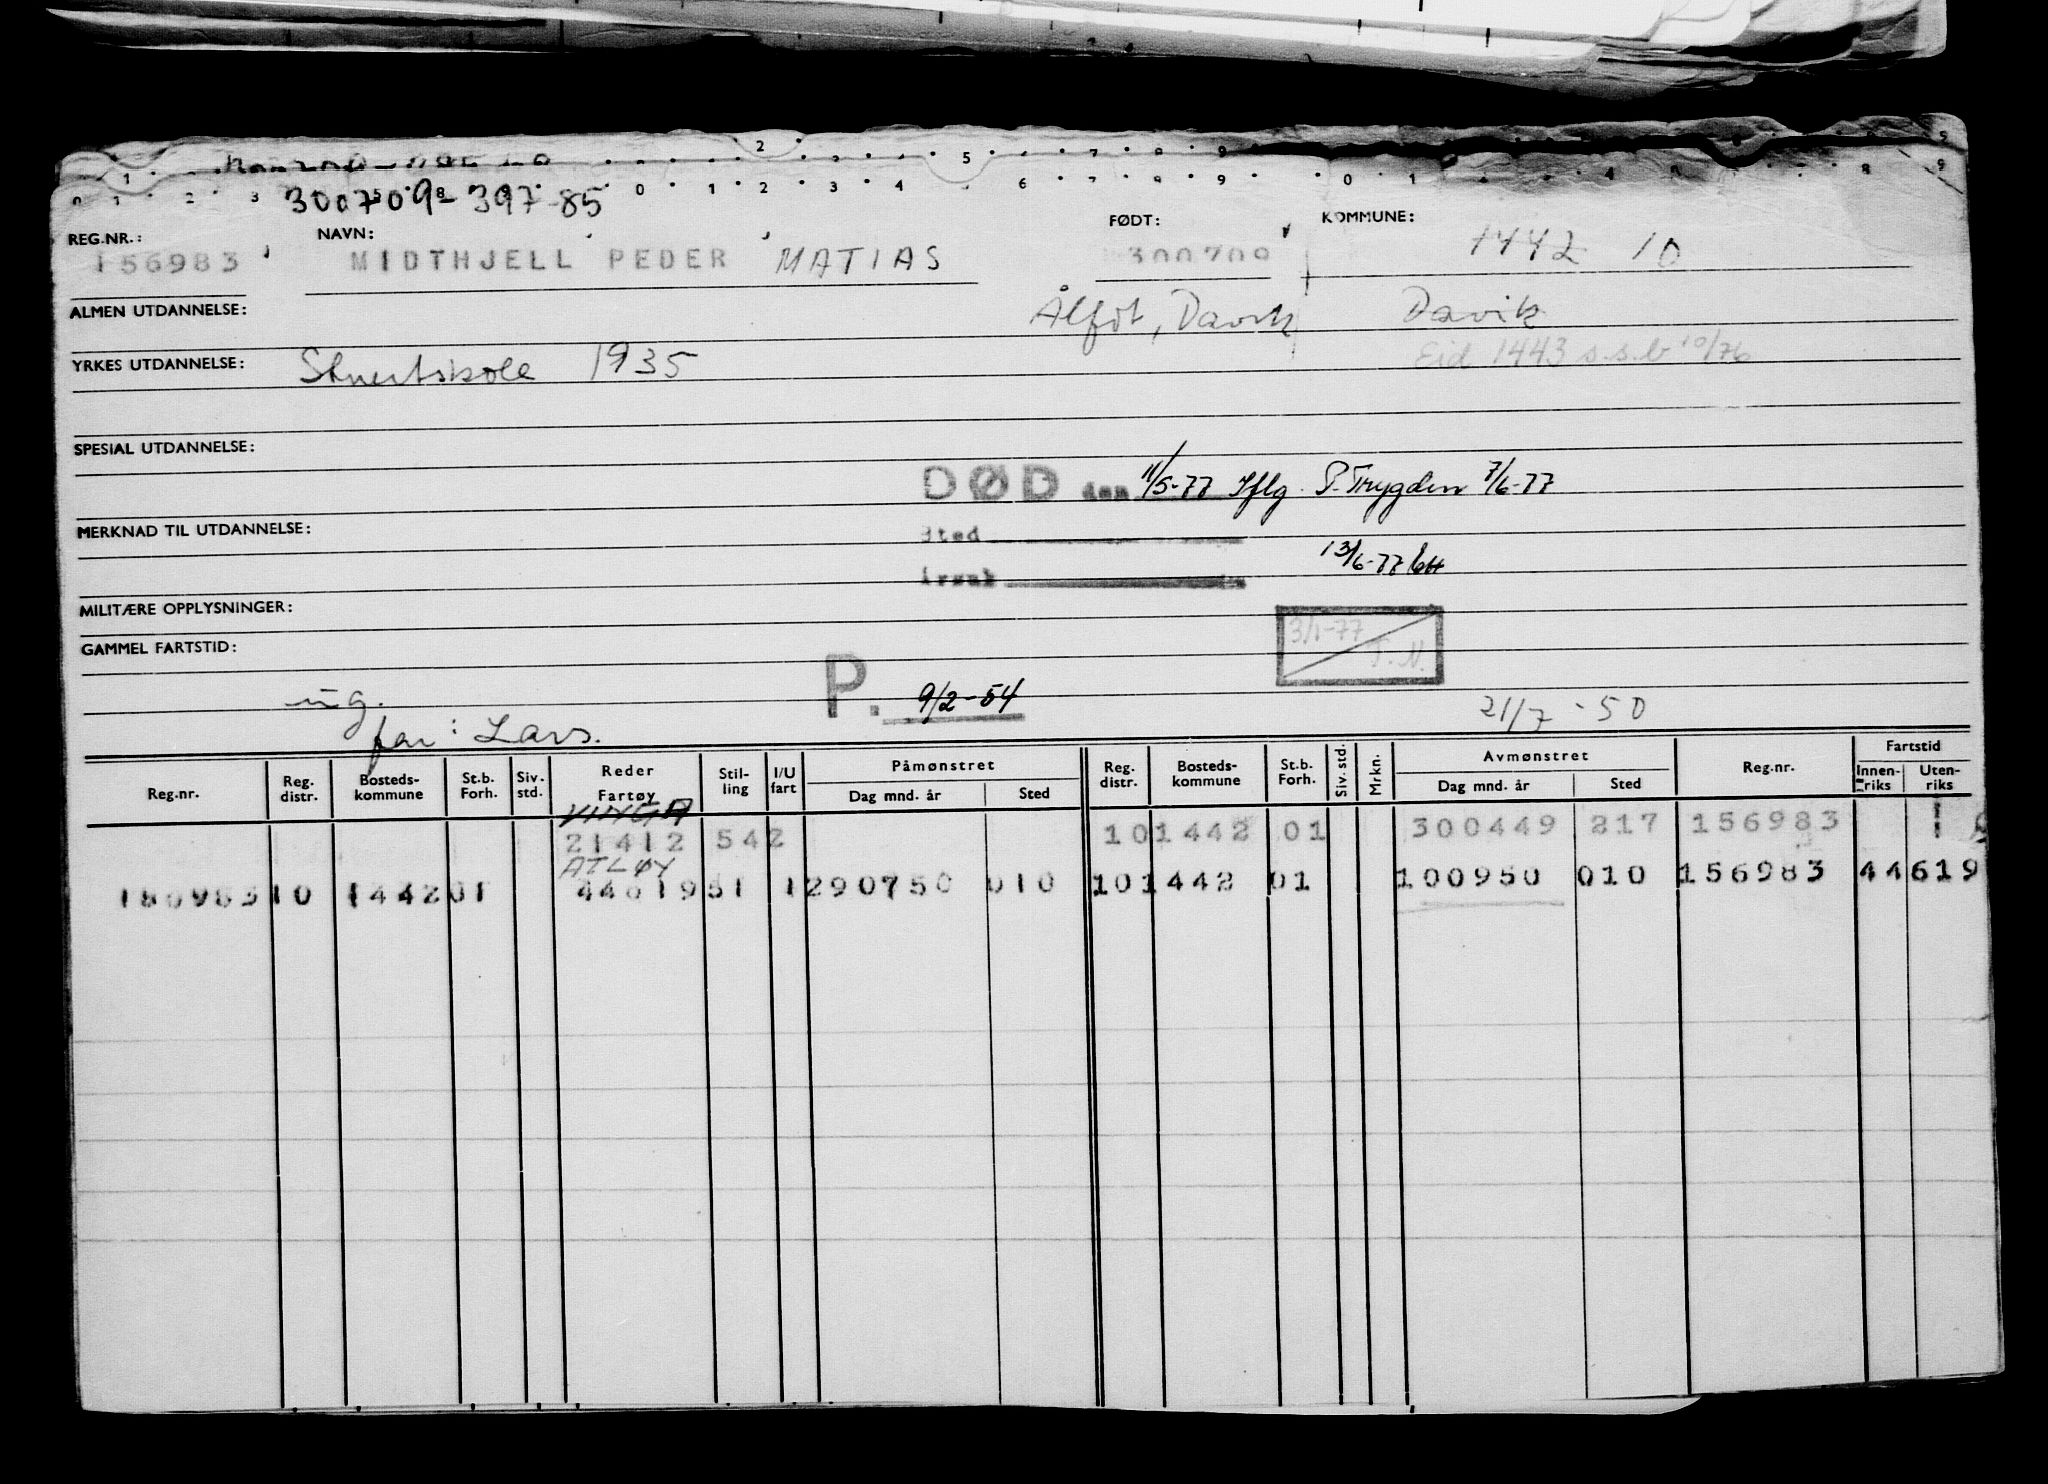 300709-397-85
REG.NR.: NAVN: FØDT: KOMMUNE:
156983 MIDTHJELL PEDER MATIAS 300709 1442 10
ALMEN UTDANNELSE: Ålfot, Davik Davik
YRKES UTDANNELSE: Stuertskole 1935 Eid 1443 s.s.b 10/76
SPESIAL UTDANNELSE:
DØD den 11/5-77 Iflg. P.Trygden 7/6-77
MERKNAD TIL UTDANNELSE: Sted
13/6-77
Årsak
MILITÆRE OPPLYSNINGER:
GAMMEL FARTSTID: 3/1-77 T.N.
ug. P. 9/2-54 21/7-50
far: Lars.
Reg.nr. Reg. distr. Bosteds- kommune St.b. Forh. Siv. std. Reder Fartøy Stil- ling I/U fart Påmønstret Dag mnd. år Sted Reg. distr. Bosteds- kommune St.b. Forh. Siv. std. Mrkn. Avmønstret Dag mnd. år Sted Reg.nr. Fartstid Innen- riks Uten- riks
VINGA
21412 542 101442 01 300449 217 156983 1
ATLØY
156983 10 1442 01 44619 51 1 290750 010 10 1442 01 100950 010 156983 44619